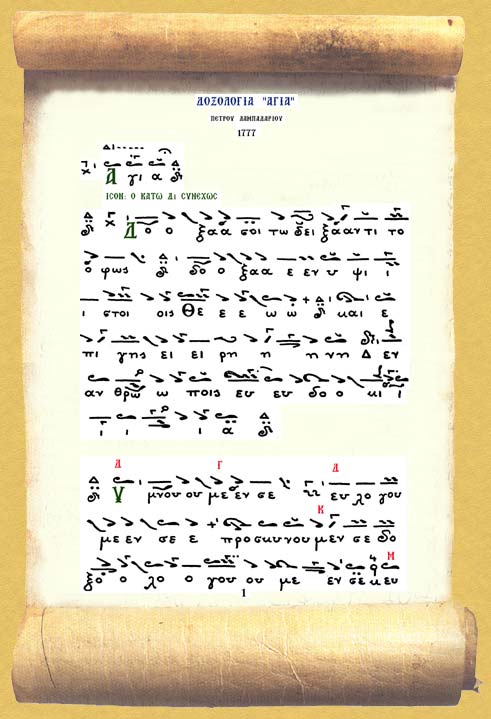 ΔΟΞΟΛΟΓΙΑ "ΑΓΙΑ"
ΠΕΤΡΟΥ ΛΑΜΠΑΔΑΡΙΟΥ
1777
Δι
Α γι α
ΙCΟΝ: Ο ΚΑΤΩ Δι CΥΝΕΧΩC
Δ ο ο ξα α σοι τω δει ξα αν τι το
ο φως δο ο ξα α ε εν υ ψι ι
ι στοι οις Θε ε ε ω ω και ε
πι γης ει ει ρη η η νη Δ εν
αν θρω ω ποις ευ ευ δο ο κι ι
ι ι ι α
Δ Γ Δ
Υ μνου ου με εν σε ευ λο γου
Κ
με εν σε ε προσκυνου μεν σε δο
Μ
ξο ο λο ο γου ου με εν σε ευ
1